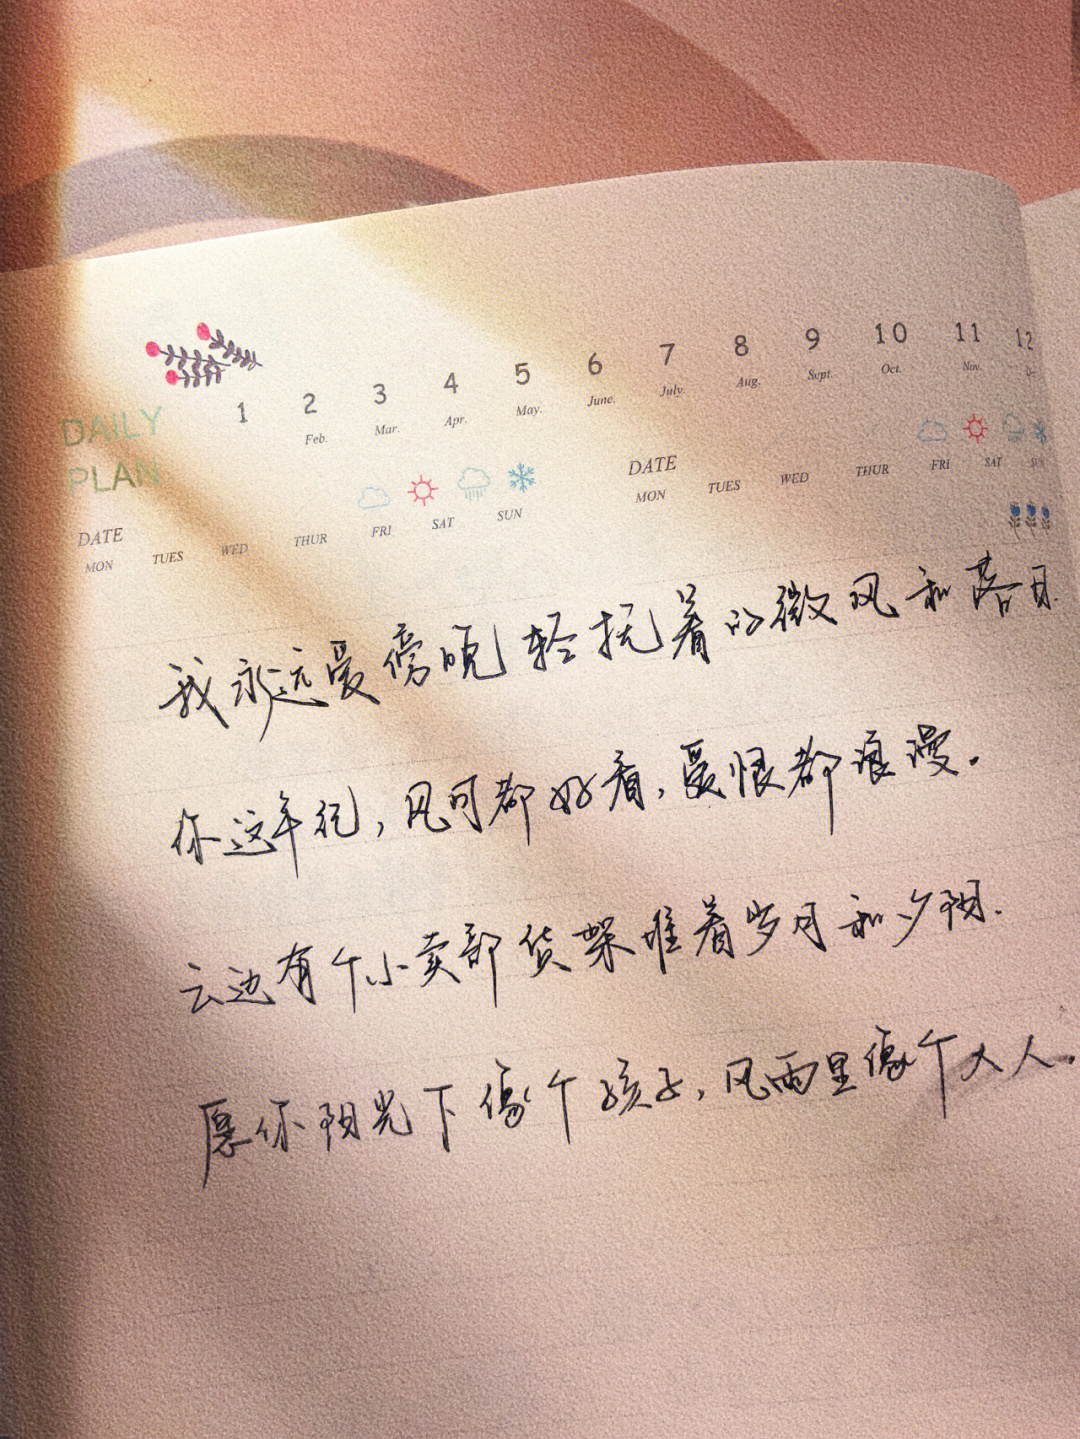 1 2 3 4 5 6 7 8 9 10 11 12
Feb. Mar. Apr. May. June. July. Aug. Sept. Oct. Nov.
DAILY
PLAN
DATE
MON TUES WED THUR FRI SAT SUN
DATE
MON TUES WED THUR FRI SAT SUN
我永远爱傍晚轻抚着的微风和落日.
你这年纪，风可都好看，爱恨都浪漫。
云边有个小卖部货架堆着岁月和夕阳.
愿你阳光下像个孩子，风雨里像个大人。